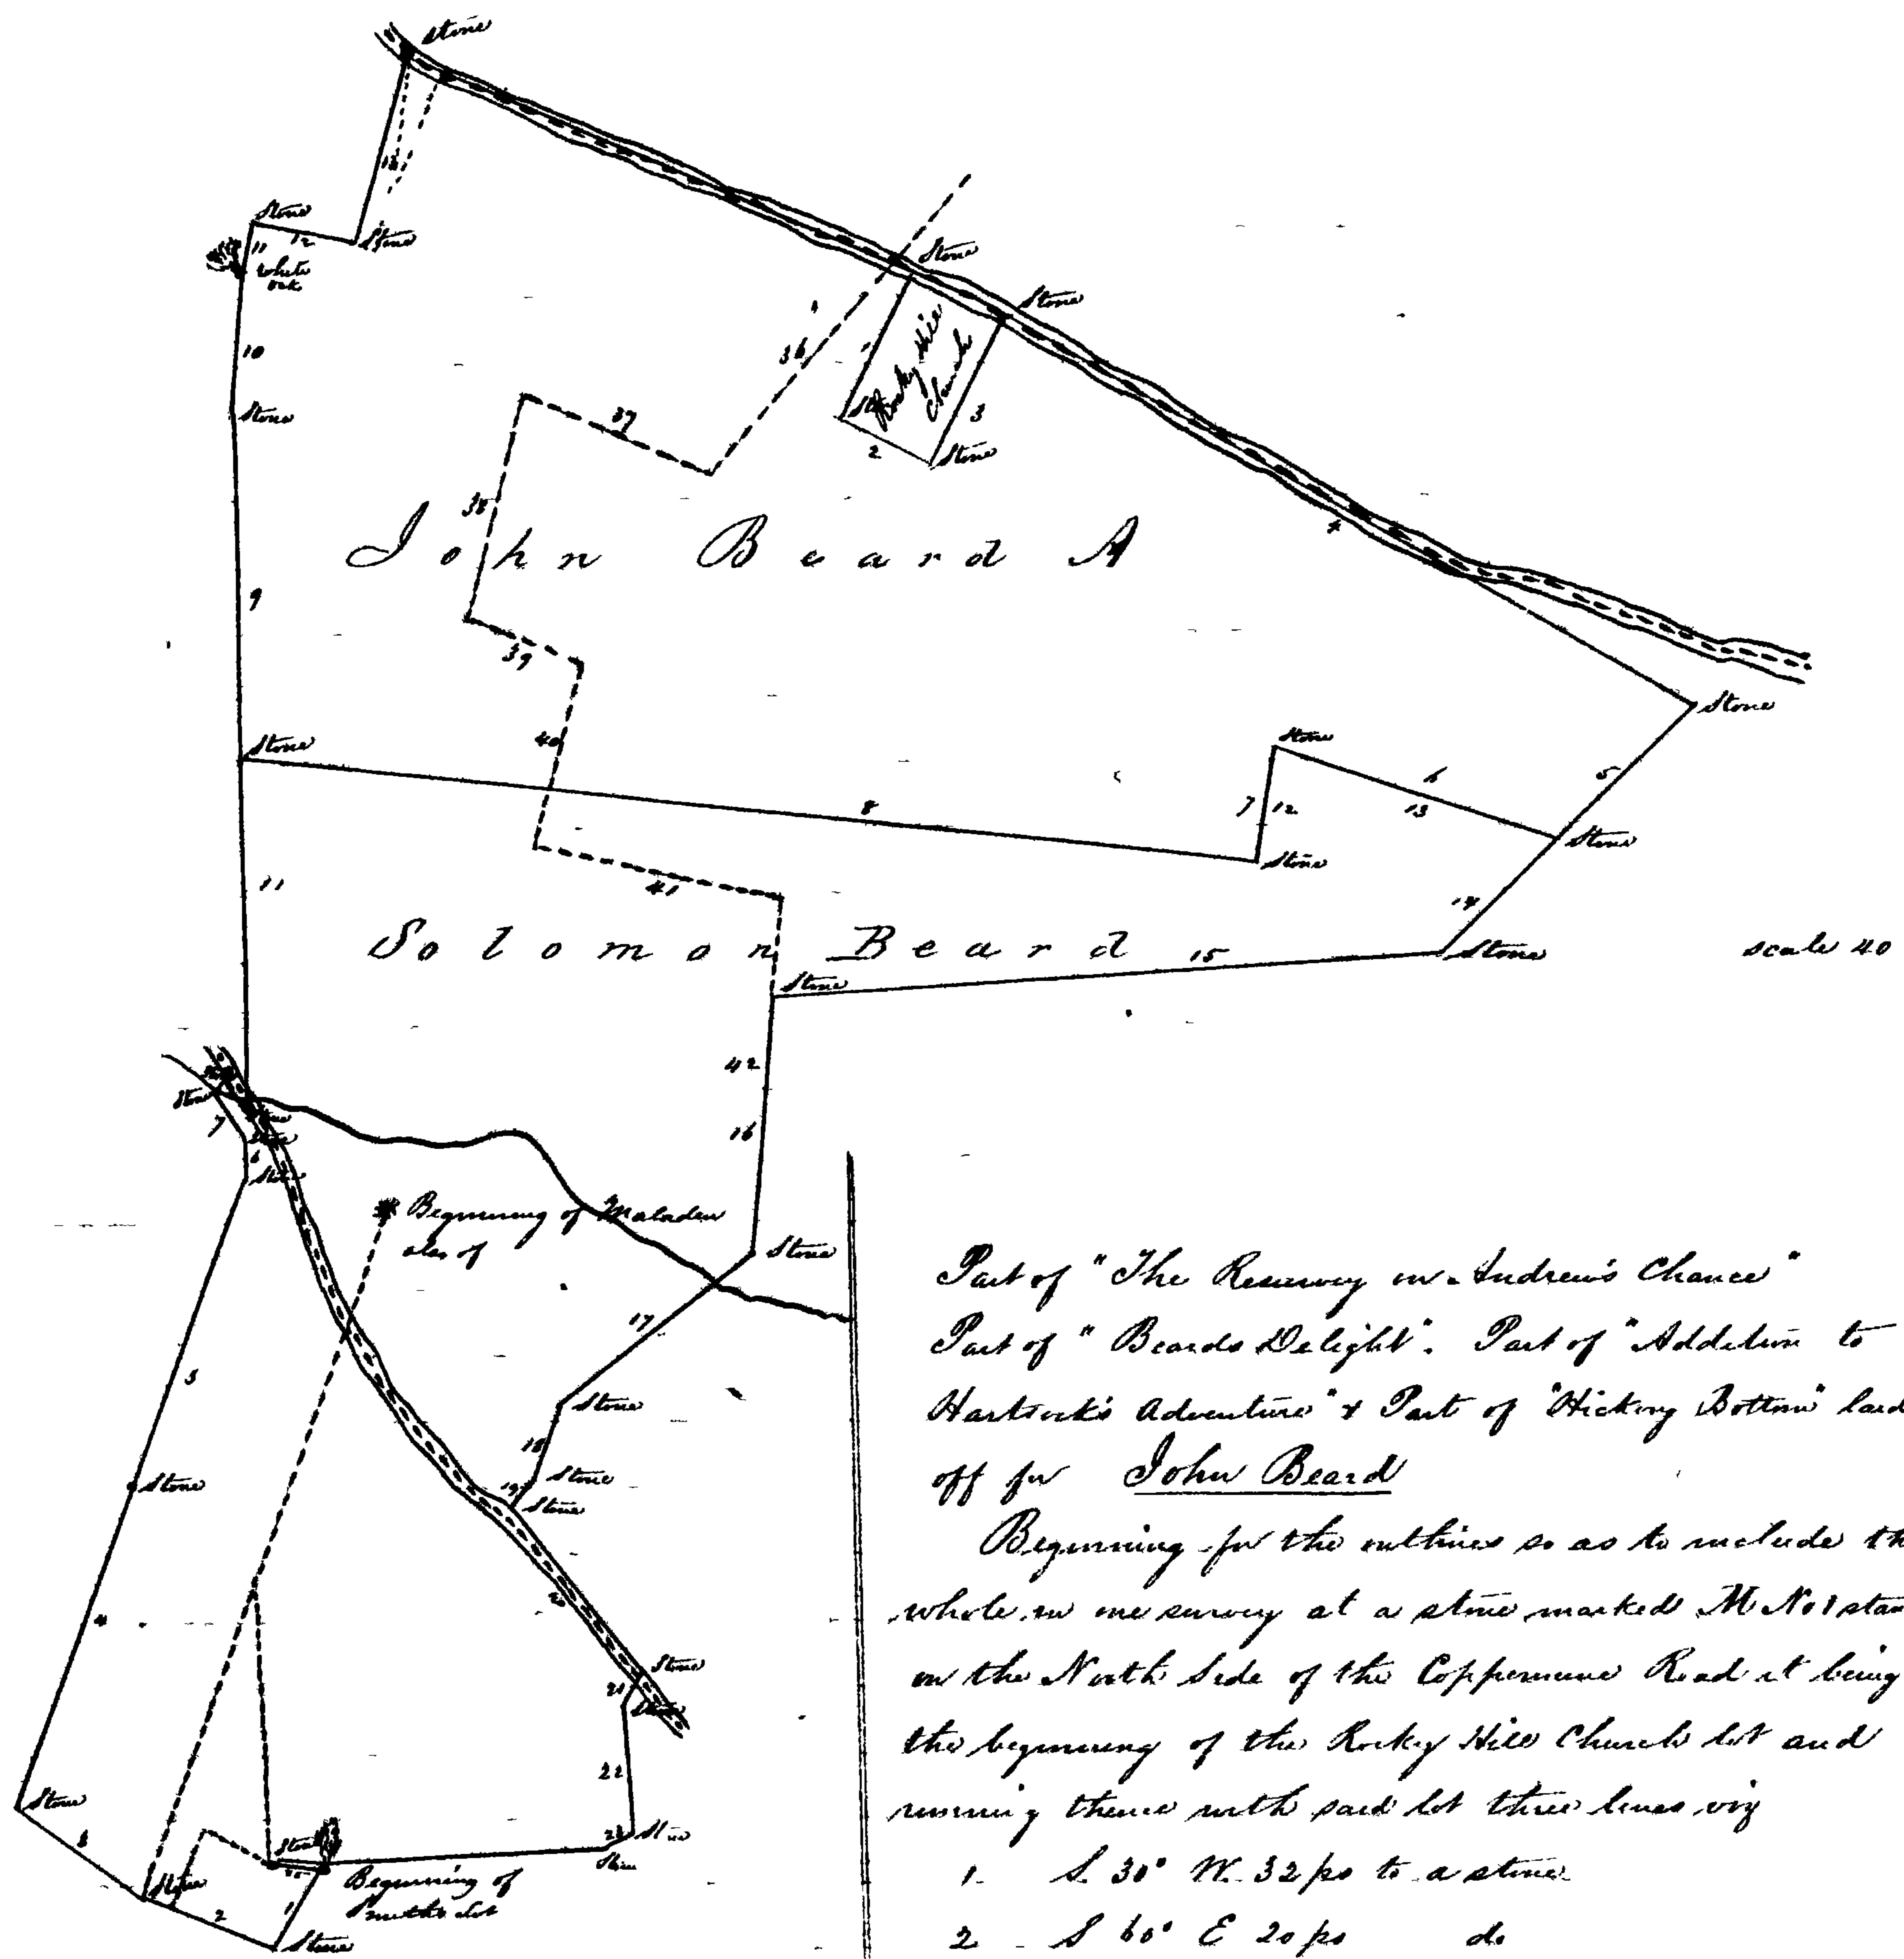 Stone
13
Stone
12
Stone
11
White
oak
10
Stone
36
Stone
Stone
1
Rocky Hill
Church
3
2
Stone
37
38
John Beard
4
9
39
Stone
40
Stone
Stone
6
5
8
7 12
13
Stone
Stone
41
11
14
Solomon Beard
15
Stone
scale 40
Stone
42
Stone
7
16
6
Beginning of
also of
Stone
17
5
Stone
18
Stone
19
Stone
Stone
4
Stone
21
22
Stone
3
Stone
Stone
Stone
Stone
Beginning of
1
lot
2
Stone
Part of "The Resurvey on Andrew's Chance"
Part of "Beards Delight". Part of "Addition to
Hartsock's Adventure" & Part of "Hickory Bottom" laid
off for John Beard
Beginning for the outlines so as to include the
whole in one survey at a stone marked M No 1 stan
on the North Side of the Coppermine Road it being
the beginning of the Rocky Hill Church lot and
running thence with said lot three lines viz
1 S. 30° W. 32 ps to a stone
2 S 60° E 20 ps do